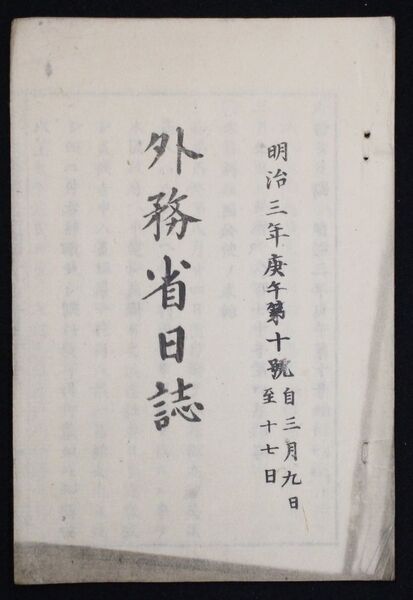 明治三年庚午第十號自三月九日
至十七日
外務省日誌